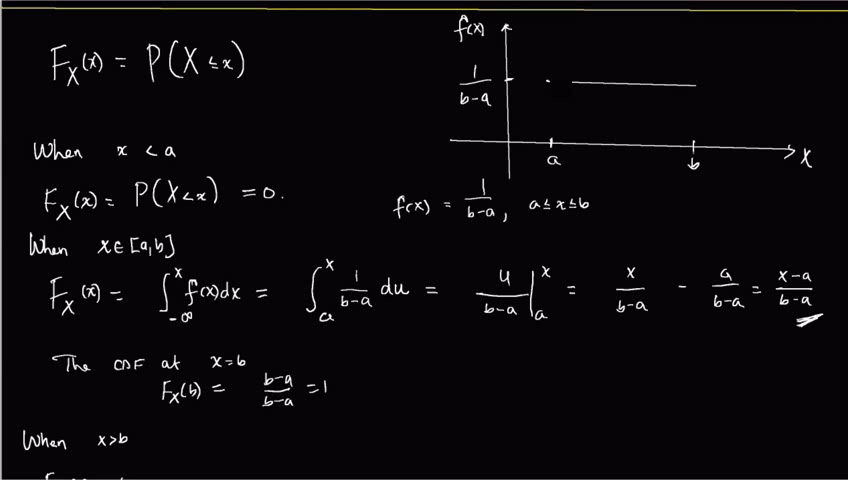 F_X(x) = P(X ≤ x)
f(x)
1/(b-a)
a
b
X
When x < a
F_X(x) = P(X<x) = 0.
f(x) = 1/(b-a), a ≤ x ≤ b
When x ∈ [a,b]
F_X(x) = ∫_{-∞}^{x} f(x)dx = ∫_{a}^{x} 1/(b-a) du = u/(b-a) |_{a}^{x} = x/(b-a) - a/(b-a) = (x-a)/(b-a)
The CDF at x=b
F_X(b) = (b-a)/(b-a) = 1
When x>b